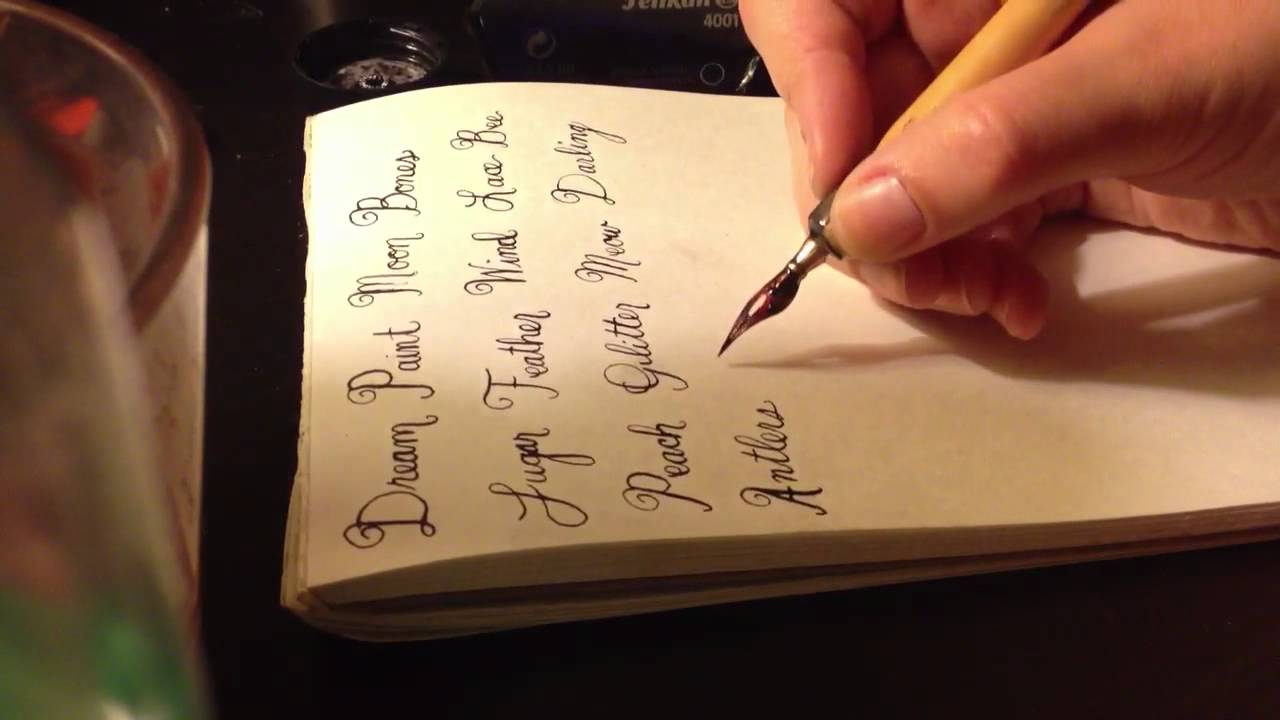 Pelikan
4001
Dream Paint Moon Bones
Sugar Feather Wind Lace Bee
Peach Glitter Meow Darling
Antlers